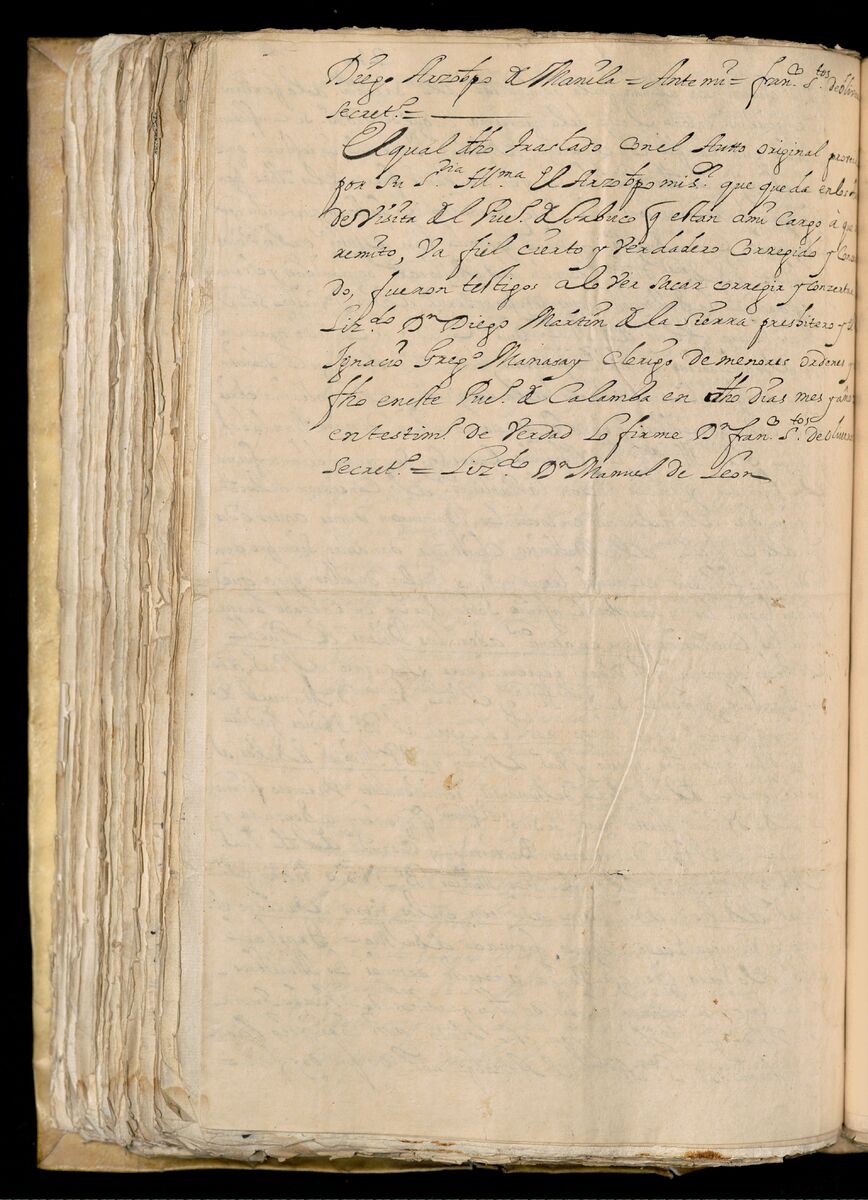 Diego Arzobpo de Manila = Ante mi = fran.co S.tos de Oliv
secret.o =
El qual dho traslado con el Autto original prove
por Su S.ria Ill.ma el Arzobpo mi s.r que queda en los
de Visita del Pueb.o de Cabuco q estan a mi cargo à que
remito, Va fiel cierto y Verdadero Corregido y Conc
do, fueron testigos a lo ver sacar corregir y conzertar
Liz.do Dn Diego Martin de la Sierra presbitero y
Ignacio Greg.o Manasay Clerigo de menores ordenes y
fho en este Pueb.o de Calamba en dho dias mes y año
en testim.o de Verdad lo firme Dn fran.co S.tos de Oliv
Secret.o = Liz.do Dn Manuel de Leon